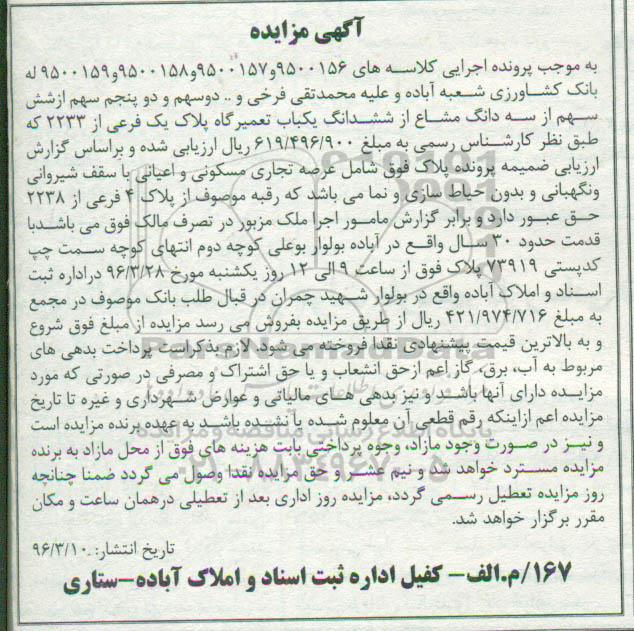 آگهی مزایده
به موجب پرونده اجرایی کلاسه های ۹۵۰۰۱۵۶و۹۵۰۰۱۵۷و۹۵۰۰۱۵۸و۹۵۰۰۱۵۹ له
بانک کشاورزی شعبه آباده و علیه محمدتقی فرخی و .. دوسهم و دو پنجم سهم ازشش
سهم از سه دانگ مشاع از ششدانگ یکباب تعمیرگاه پلاک یک فرعی از ۲۲۳۳ که
طبق نظر کارشناس رسمی به مبلغ ۶۱۹/۴۹۶/۹۰۰ ریال ارزیابی شده و براساس گزارش
ارزیابی ضمیمه پرونده پلاک فوق شامل عرصه تجاری مسکونی و اعیانی با سقف شیروانی
ونگهبانی و بدون حیاط سازی و نما می باشد که رقبه موصوف از پلاک ۴ فرعی از ۲۲۳۸
حق عبور دارد و برابر گزارش مامور اجرا ملک مزبور در تصرف مالک فوق می باشدبا
قدمت حدود ۳۰ سال واقع در آباده بولوار بوعلی کوچه دوم انتهای کوچه سمت چپ
کدپستی ۷۳۹۱۹ پلاک فوق از ساعت ۹ الی ۱۲ روز یکشنبه مورخ ۹۶/۳/۲۸ دراداره ثبت
اسناد و املاک آباده واقع در بولوار شهید چمران در قبال طلب بانک موصوف در مجمع
به مبلغ ۴۲۱/۹۷۴/۷۱۶ ریال از طریق مزایده بفروش می رسد مزایده از مبلغ فوق شروع
و به بالاترین قیمت پیشنهادی نقدا فروخته می شود لازم بذکراست پرداخت بدهی های
مربوط به آب، برق، گاز اعم ازحق انشعاب و یا حق اشتراک و مصرفی در صورتی که مورد
مزایده دارای آنها باشد و نیز بدهی های مالیاتی و عوارض شهرداری و غیره تا تاریخ
مزایده اعم ازاینکه رقم قطعی آن معلوم شده یا نشده باشد به عهده برنده مزایده است
و نیز در صورت وجود مازاد، وجوه پرداختی بابت هزینه های فوق از محل مازاد به برنده
مزایده مسترد خواهد شد و نیم عشر و حق مزایده نقدا وصول می گردد ضمنا چنانچه
روز مزایده تعطیل رسمی گردد، مزایده روز اداری بعد از تعطیلی درهمان ساعت و مکان
مقرر برگزار خواهد شد.
تاریخ انتشار: ۹۶/۳/۱۰
۱۶۷/م.الف- کفیل اداره ثبت اسناد و املاک آباده-ستاری
ParsNamadData